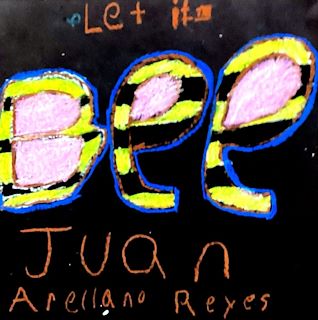 Let it
Bee
Juan
Arellano Reyes